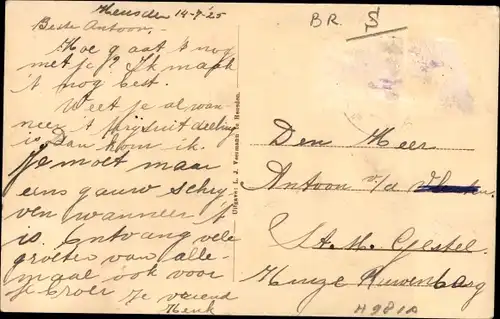 Heusden 14-7-'25
Beste Antoon.
Hoe gaat 't nog
met je? Ik maak
't nog best.
Weet je al wan-
neer 't prijsuitdeeling
is. Dan kom ik.
Je moet maar
eens gauw schrij
ven wanneer 't
is. Ontvang vele
groeten van alle-
maal ook voor
je broer Je vriend
Henk
Uitgave: L. J. Veerman, Heusden.
BR. S
Den Heer
Antoon v/d
St. M. Gestel.
Huize Ruwenberg
H 9810